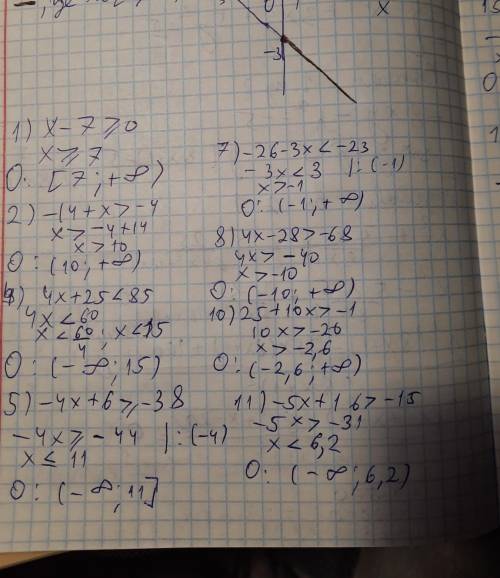 0
x
-3
1) x-7⩾0
x⩾7
O: [7;+∞)
2) -14+x>-4
x>-4+14
x>10
O: (10;+∞)
4) 4x+25<85
4x<60
x<60/4; x<15
O: (-∞;15)
5) -4x+6⩾-38
-4x⩾-44 |:(-4)
x≤11
O: (-∞;11]
7) -26-3x<-23
-3x<3 |:(-1)
x>-1
O: (-1;+∞)
8) 4x-28>-68
4x>-40
x>-10
O: (-10;+∞)
10) 25+10x>-1
10x>-26
x>-2,6
O: (-2,6;+∞)
11) -5x+16>-15
-5x>-31
x<6,2
O: (-∞;6,2)